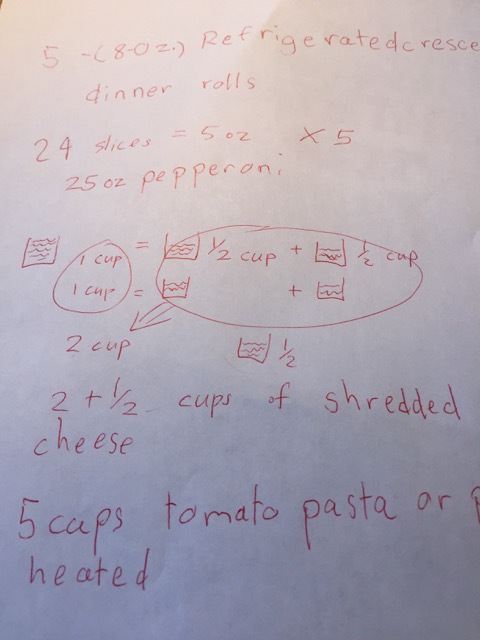 5 -(8-oz.) Refrigeratedcresce
dinner rolls
24 slices = 5 oz × 5
25 oz pepperoni
1 cup = 1/2 cup + 1/2 cup
1 cup = +
2 cup 1/2
2 + 1/2 cups of shredded
cheese
5 caps tomato pasta or p
heated